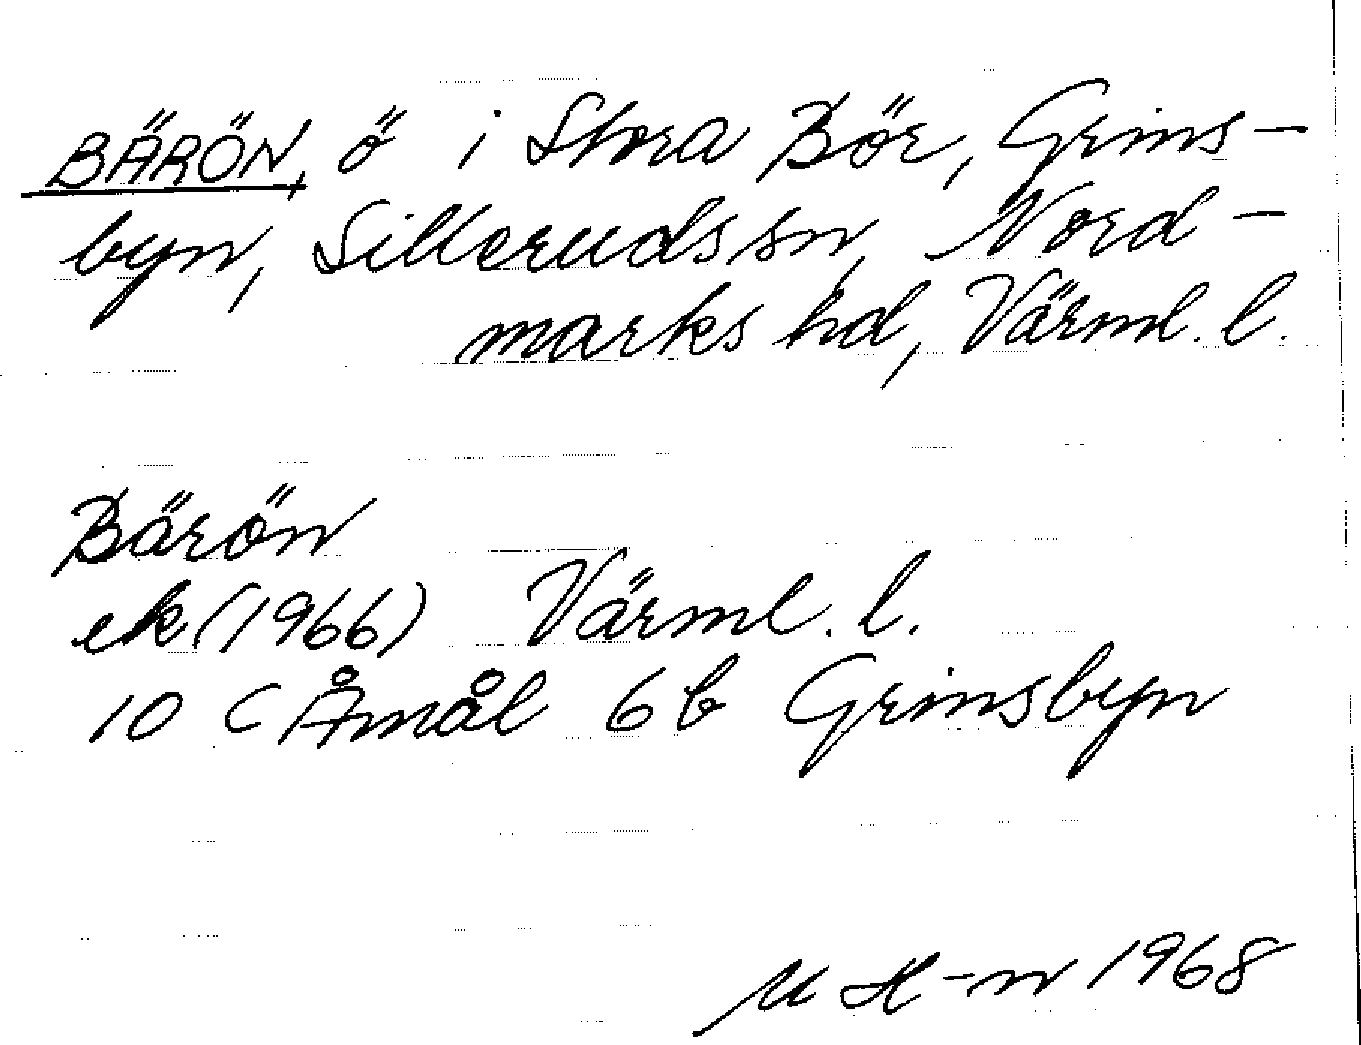 BÄRÖN, ö i Stora Bör, Grins-
byn, Sillerudssn, Nord-
marks hd, Värml. l.
Bärön
ek (1966) Värml. l.
10 C Åmål 6b Grinsbyn
M H-n 1968